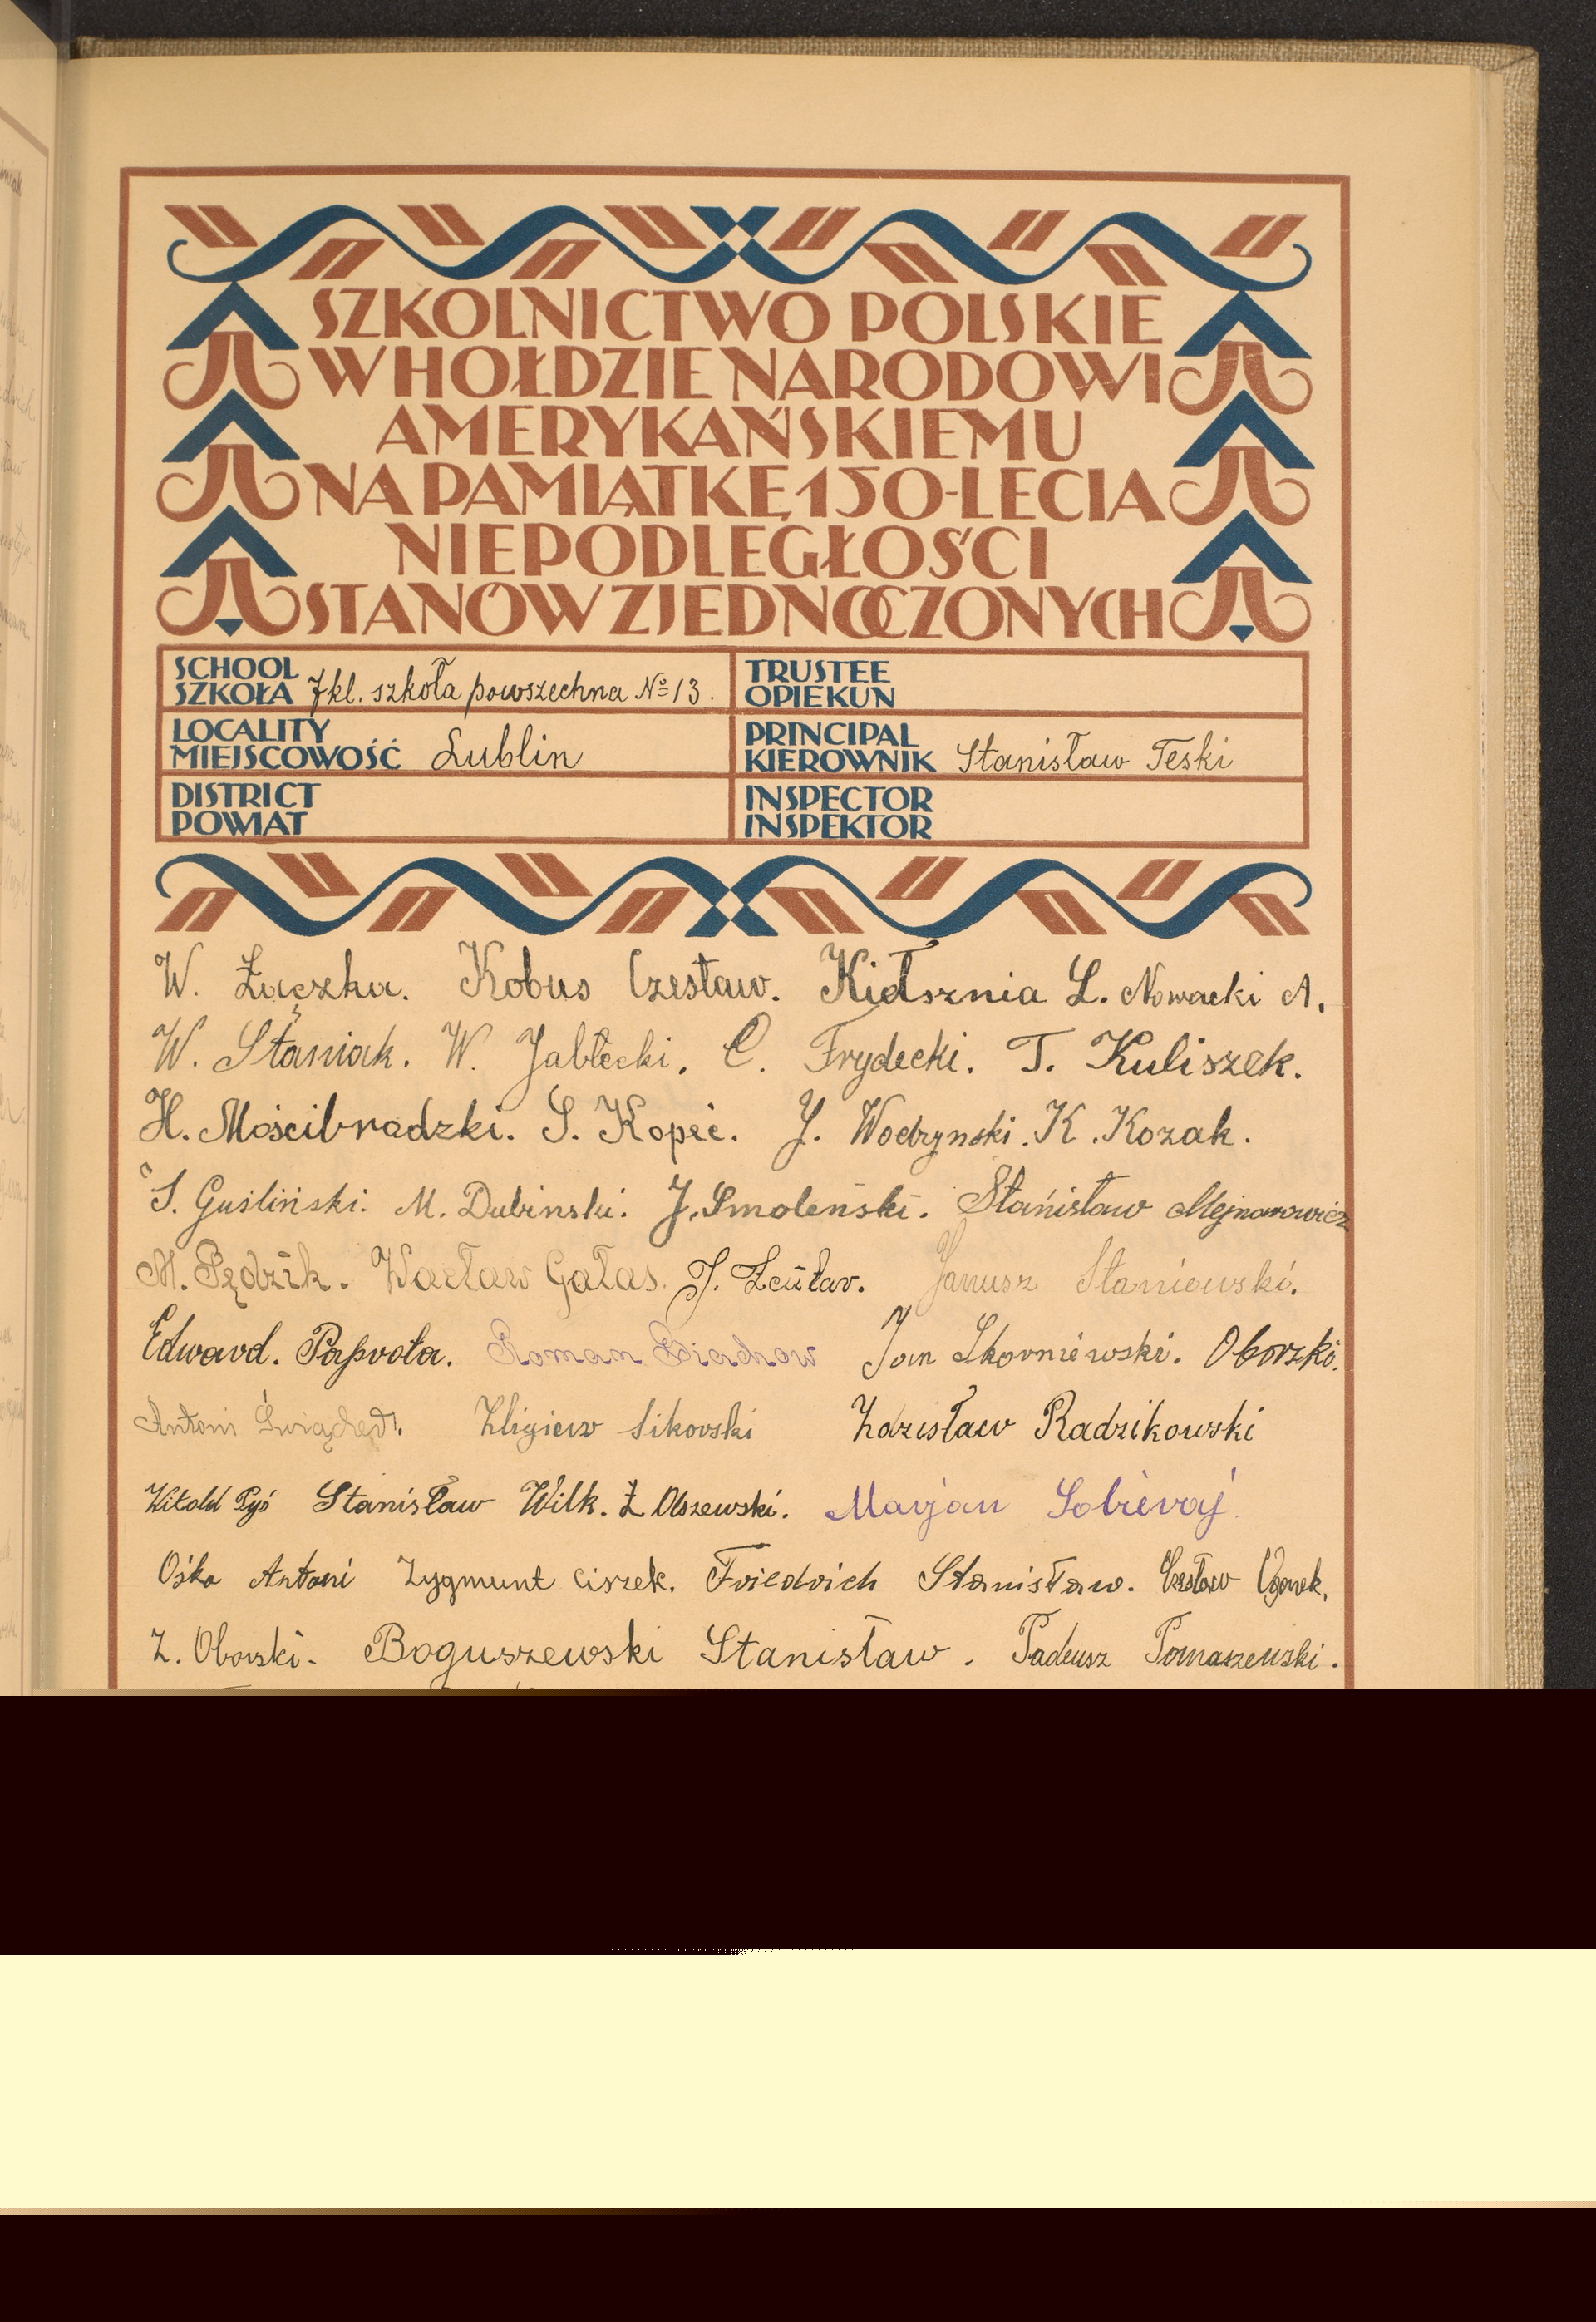 SZKOLNICTWO POLSKIE
W HOŁDZIE NARODOWI
AMERYKAŃSKIEMU
NA PAMIĄTKĘ 150-LECIA
NIEPODLEGŁOŚCI
STANÓW ZJEDNOCZONYCH
SCHOOL
SZKOŁA 7 kl. szkoła powszechna № 13.
TRUSTEE
OPIEKUN
LOCALITY
MIEJSCOWOŚĆ Lublin
PRINCIPAL
KIEROWNIK Stanisław Teski
DISTRICT
POWIAT
INSPECTOR
INSPEKTOR
W. Kobus Czesław. L. Nowacki A.
W. Staniak. W. Jabłecki. C. Frydecki. T. Kuliszek.
H. Mościbradzki. S. Kopeć. J. Wodzynski. K. Kozak.
S. Guśliński. M. Dubinski. J. Smoleński. Stanisław Mejnarowicz
M. Pędzik. Wacław Gałas. J. Janusz Staniewski.
Edward. Paprota. Roman Jan Skorniewski. Oborzki.
Antoni Sikorski Zdzisław Radzikowski
Witold Stanisław Wilk. Z Olszewski. Marjan
Ośko Antoni Zygmunt Ciszek. Friedrich Stanisław. Czesław Ogorek.
Z. Oborski. Boguszewski Stanisław. Tadeusz Tomaszewski.